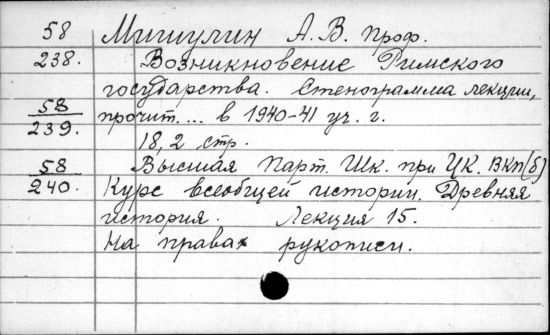 58 Мишулин А. В. проф.
238. Возникновение Римского
государства. Стенограмма лекции,
58 прочит.... в 1940-41 уч. г.
239. 18, 2 стр.
58 Высшая Парт. Шк. при ЦК. ВКП(б)
240. Курс всеобщей истории. Древняя
история. Лекция 15.
На правах рукописи.